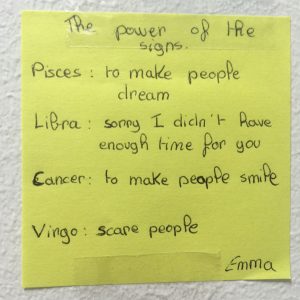 The power of the
signs.
Pisces : to make people
dream
Libra : sorry I didn't have
enough time for you
Cancer : to make people smile
Virgo : scare people
Emma